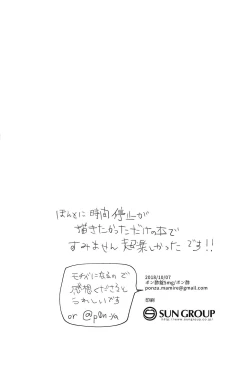 ほんとに時間停止が
描きたかっただけの本で
すみません超楽しかったです!!
モチベになるので
感想くださると
うれしいです
or @p0n_ya
2018/10/07
ポン酢/5mg/ポン酢
ponzu.mamire@gmail.com
印刷
SUN GROUP
http://www.sungroup.co.jp/